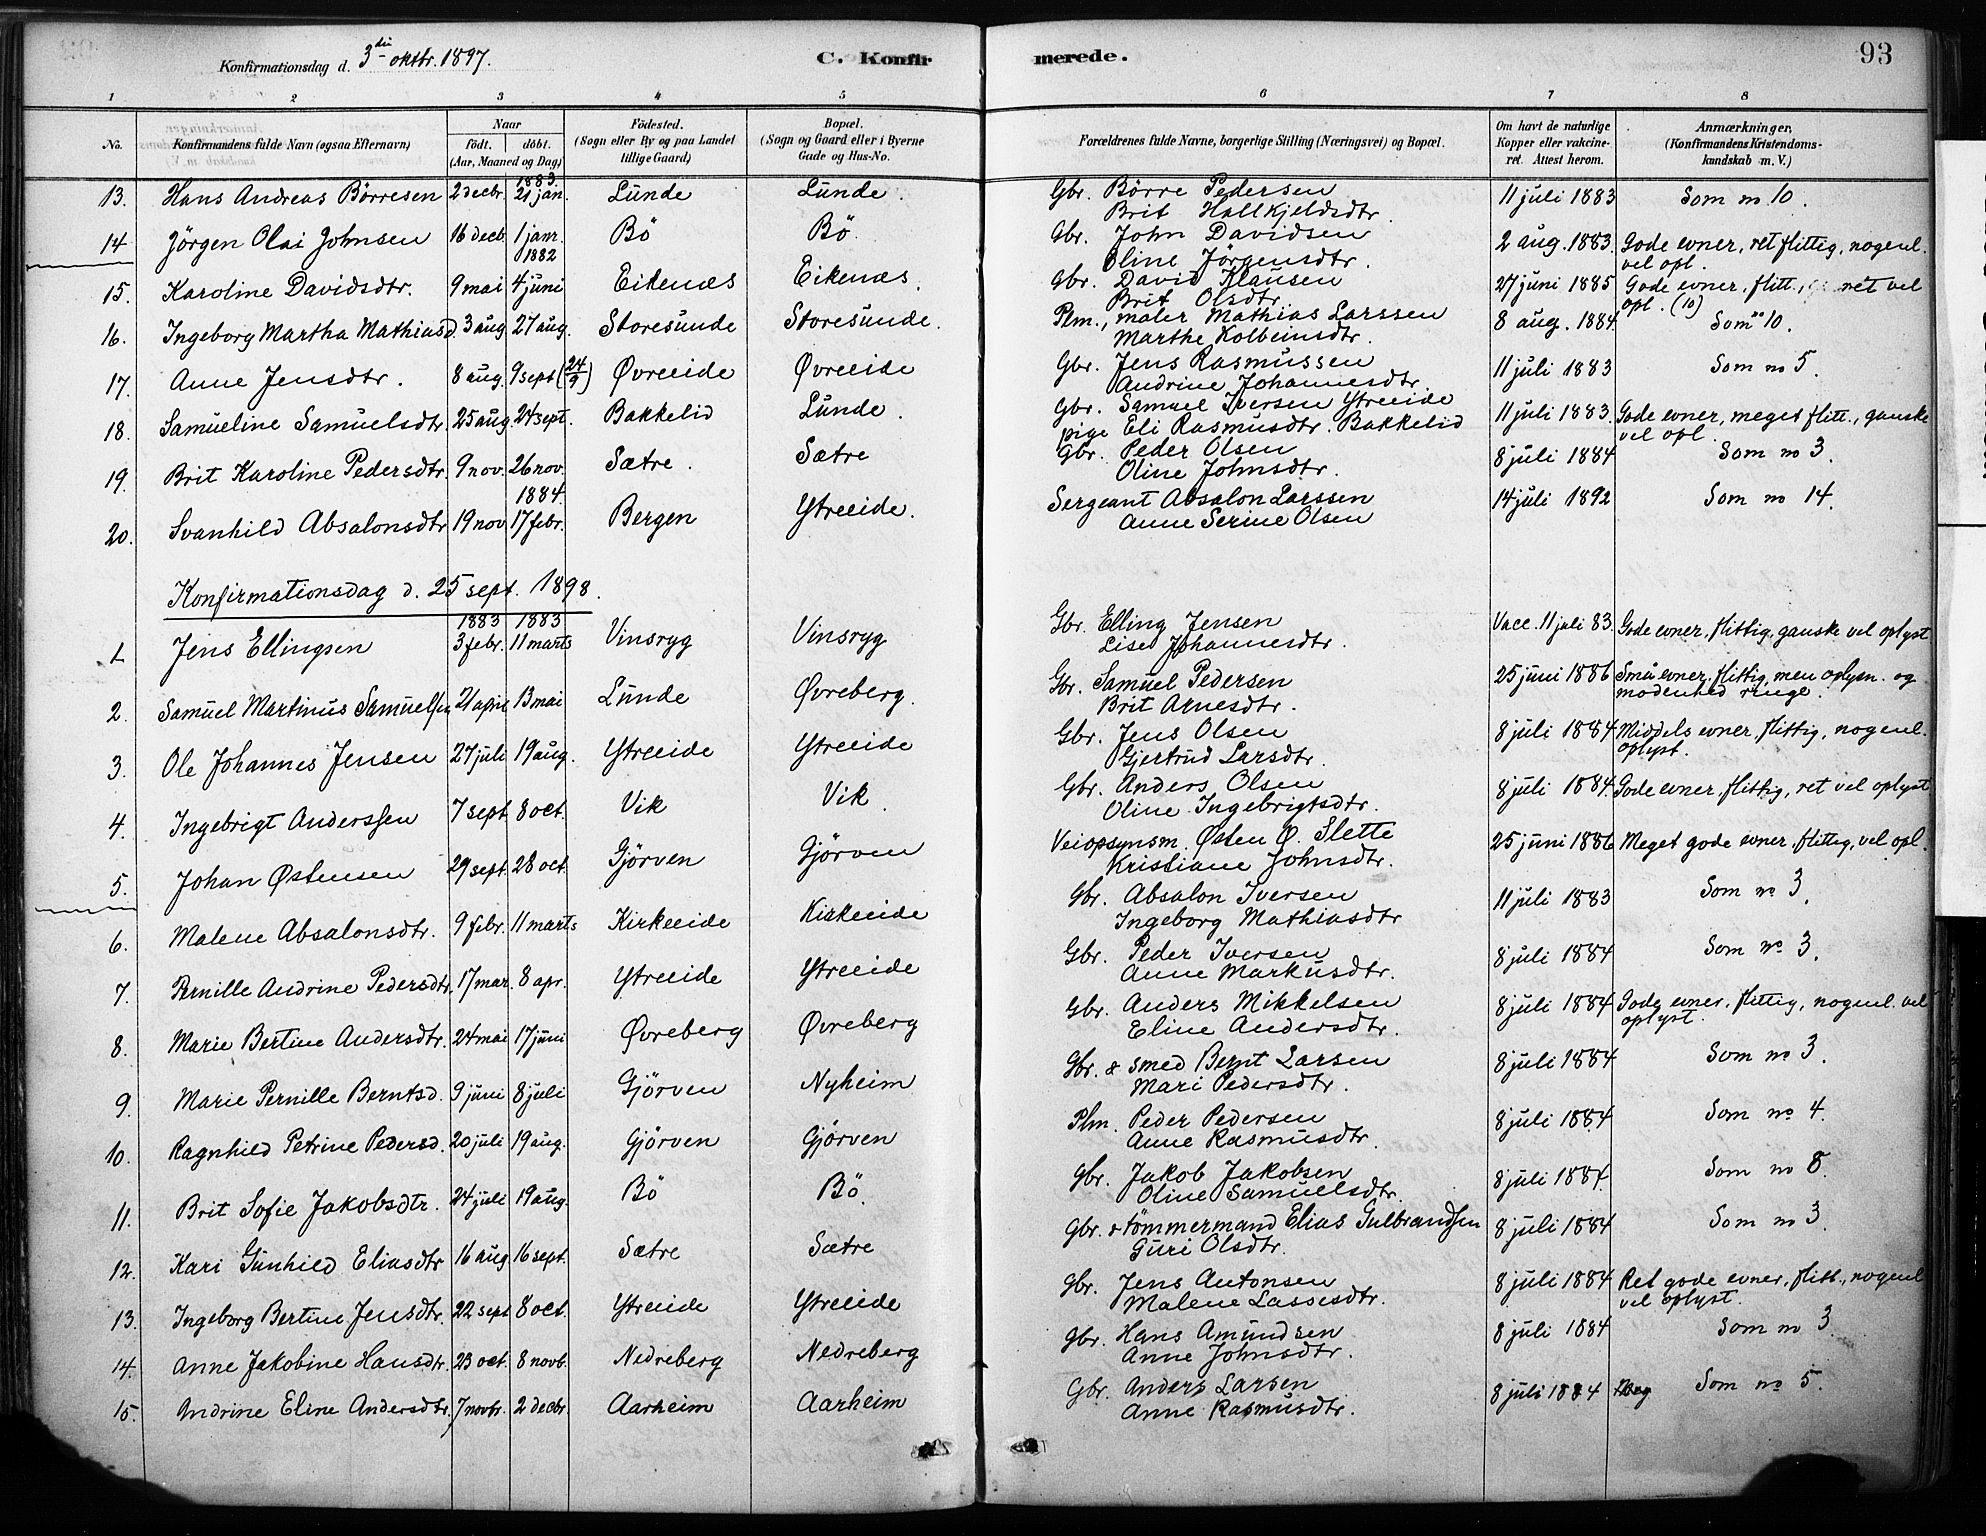 Konfirmationsdag d. 3die oktbr. 1897.
C. Konfirmerede.
93
1 2 3 4 5 6 7 8
No. Konfirmandens fulde Navn (ogsaa Efternavn) Naar födt. döbt. (Aar, Maaned og Dag) Födested. (Sogn eller By og paa Landet tillige Gaard) Bopæl. (Sogn og Gaard eller i Byerne Gade og Hus-No. Forældrenes fulde Navne, borgerlige Stilling (Næringsvei) og Bopæl. Om havt de naturlige Kopper eller vakcineret. Attest herom. Anmærkninger, (Konfirmandens Kristendomskundskab m. V.)
13. Hans Andreas Börresen 2 decbr. 1883 21 jan. Lunde Lunde. Gbr. Börre Pedersen 11 juli 1883 Som no 10.
Brit Hallkjeldsdtr.
14 Jörgen Olai Johnsen 16 decb. 1 janr. Bö Bö. Gbr. John Davidsen 2 aug. 1883. Gode evner, ret flittig, nogenl. vel opl.
Oline Jörgensdtr.
1882
15. Karoline Davidsdtr. 9 mai 4 juni Eikenæs Eikenæs. Gbr. David Klausen 27 juni 1885 Gode evner, flitt., ret vel opl. (10)
Brit Olsdtr.
16. Ingeborg Martha Mathiasd. 3 aug. 27 aug. Storesunde Storesunde. Plm., maler Mathias Larssen 8 aug. 1884. Som no 10.
Marthe Kolbeinsdtr.
17. Anne Jensdtr. 8 aug. 9 sept (24/9) Øvreeide Øvreeide Gbr. Jens Rasmussen 11 juli 1883 Som no 5.
Andrine Johannesdtr.
18. Samueline Samuelsdtr. 25 aug. 24 sept. Bakkelid Lunde. Gbr. Samuel Iversen Ytreeide 11 juli 1883. Gode evner, meget flitt., ganske vel opl.
pige Eli Rasmusdtr. Bakkelid
19. Brit Karoline Pedersdtr. 9 nov. 26 nov. Sætre. Sætre Gbr. Peder Olsen 8 juli 1884 Som no 3.
Oline Johnsdtr.
1884.
20. Svanhild Absalonsdtr 19 nov 17 febr. Bergen Ytreeide. Sergeant Absalon Larssen 14 juli 1892 Som no 14.
Anne Serine Olsen
Konfirmationsdag d. 25 sept. 1898.
1883 1883
1. Jens Ellingsen 3 febr. 11 marts Vinsryg Vinsryg Gbr. Elling Jensen Vacc. 11 juli 83. Gode evner, flittig, ganske vel oplyst
Lise Johannesdtr.
2. Samuel Martinus Samuelsen 21 april 13 mai Lunde Øvreberg. Gbr. Samuel Pedersen 25 juni 1886 Små evner, flittig, men oplysn. og modenhed ringe.
Brit Arnesdtr.
3. Ole Johannes Jensen 27 juli 19 aug. Ytreeide Ytreeide Gbr. Jens Olsen 8 juli 1884 Middels evner, flittig, nogenl. oplyst.
Gjertrud Larsdtr.
4. Ingebrigt Anderssen 7 sept 8 oct. Vik Vik. Gbr. Anders Olsen 8 juli 1884. Gode evner, flittig, ret vel oplyst
Oline Ingebrigtsdtr.
5. Johan Østensen 29 sept. 28 oct. Gjörven Gjörven Veiopsynsm. Østen Ø. Slette 25 juni 1886 Meget gode evner, flittig, vel opl.
Kristiane Johnsdtr.
6. Malene Absalonsdtr. 9 febr. 11 marts Kirkeeide Kirkeeide Gbr. Absalon Iversen 11 juli 1883 Som no 3.
Ingeborg Mathiasdtr
7. Pernille Andrine Pedersdtr. 17 mar. 8 apr. Ytreeide Ytreeide Gbr. Peder Iversen 8 juli 1884 Som no 3.
Anne Markusdtr.
8. Marie Bertine Andersdtr. 24 mai 17 juni Øvreberg Øvreberg Gbr. Anders Mikkelsen 8 juli 1884 Gode evner, flittig, nogenl. vel oplyst.
Eline Andersdtr.
9. Marie Pernille Berntsd. 9 juni 8 juli Gjörven Nyheim Gbr. & smed Bernt Larsen 8 juli 1884 Som no 3.
Mari Pedersdtr.
10. Ragnhild Petrine Pedersd. 20 juli 19 aug. Gjörven Gjörven Plm. Peder Pedersen 8 juli 1884 Som no 4.
Anne Rasmusdtr.
11. Brit Sofie Jakobsdtr. 24 juli 19 aug. Bö Bö. Gbr. Jakob Jakobsen 8 juli 1884. Som no 8.
Oline Samuelsdtr.
12. Kari Gunhild Eliasdtr 16 aug 16 sept. Sætre Sætre Gbr. & tömmermand Elias Gulbrandsen 8 juli 1884 Som no 3.
Guri Olsdtr.
13. Ingeborg Bertine Jensdtr. 22 sept 8 oct. Ytreeide Ytreeide Gbr. Jens Antonsen 8 juli 1884 Ret gode evner, flitt., nogenl vel oplyst.
Malene Lassesdtr.
14. Anne Jakobine Hansdtr. 23 oct. 8 novb. Nedreberg Nedreberg Gbr. Hans Amundsen 8 juli 1884 Som no 3.
Anne Johnsdtr.
15. Andrine Eline Andersdtr. 7 novbr. 2 decbr. Aarheim Aarheim Gbr. Anders Larsen 8 juli 1884 Som no 5.
Anne Rasmusdtr.